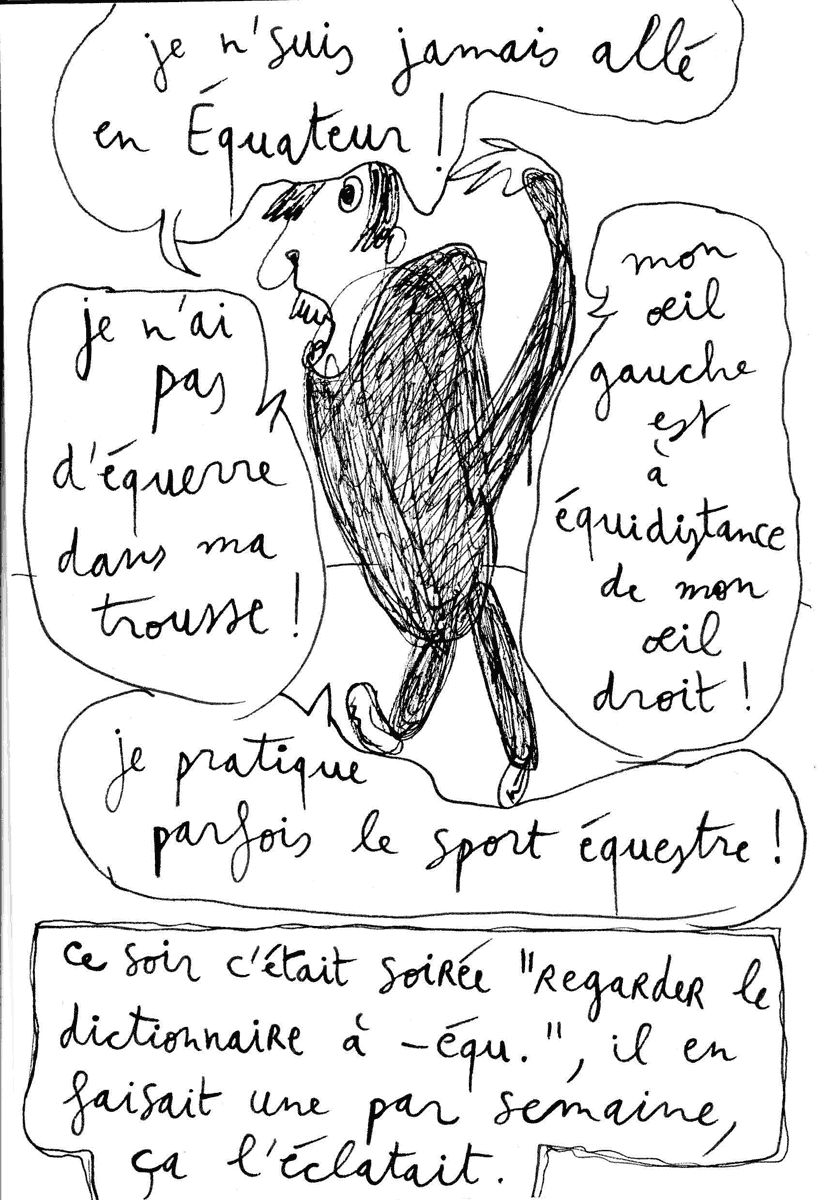 je n'suis jamais allé
en Équateur !
je n'ai
pas
d'équerre
dans ma
trousse !
mon
œil
gauche
est
à
équidistance
de mon
œil
droit !
je pratique
parfois le sport équestre !
ce soir c'était soirée "regarder le
dictionnaire à -équ.", il en
faisait une par semaine,
ça l'éclatait.